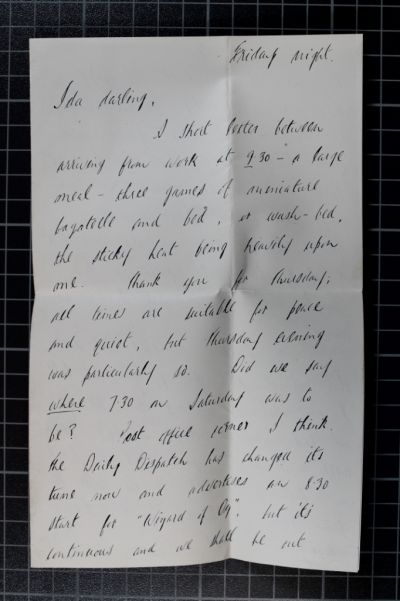 Friday night.
Ida darling,
I short letter between
arriving from work at 9.30 – a large
meal – three games of miniature
bagatelle and bed, or wash-bed,
the sticky heat being heavily upon
me. Thank you for Thursday;
all times are suitable for peace
and quiet, but Thursday evening
was particularly so. Did we say
where 7.30 on Saturday was to
be? Post office corner I think.
The Daily Dispatch has changed its
tune now and advertises an 8.30
start for "Wizard of Oz". but it's
continuous and we shall be out